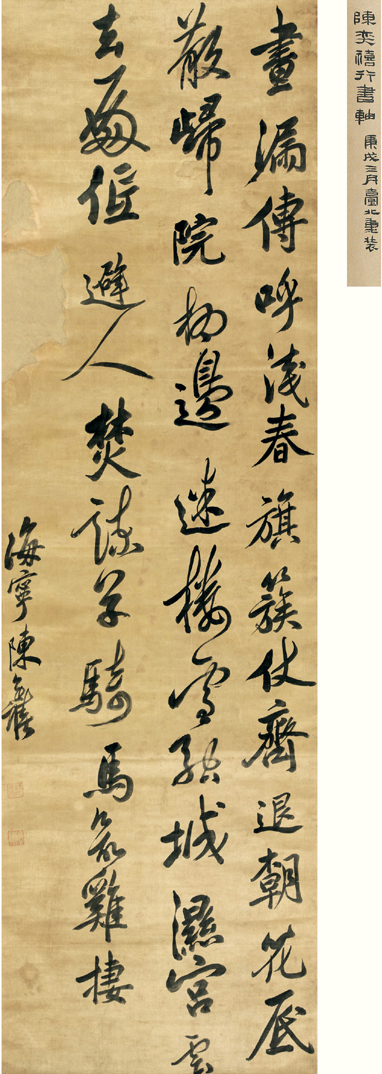 陳奕禧行書軸 庚戌三月臺北重裝
晝漏傳呼淺春旗簇仗齊退朝花底
散歸院柳邊迷樓雪融城濕宮雲
去殿低避人焚諫草騎馬欲雞棲
海寧陳奕禧